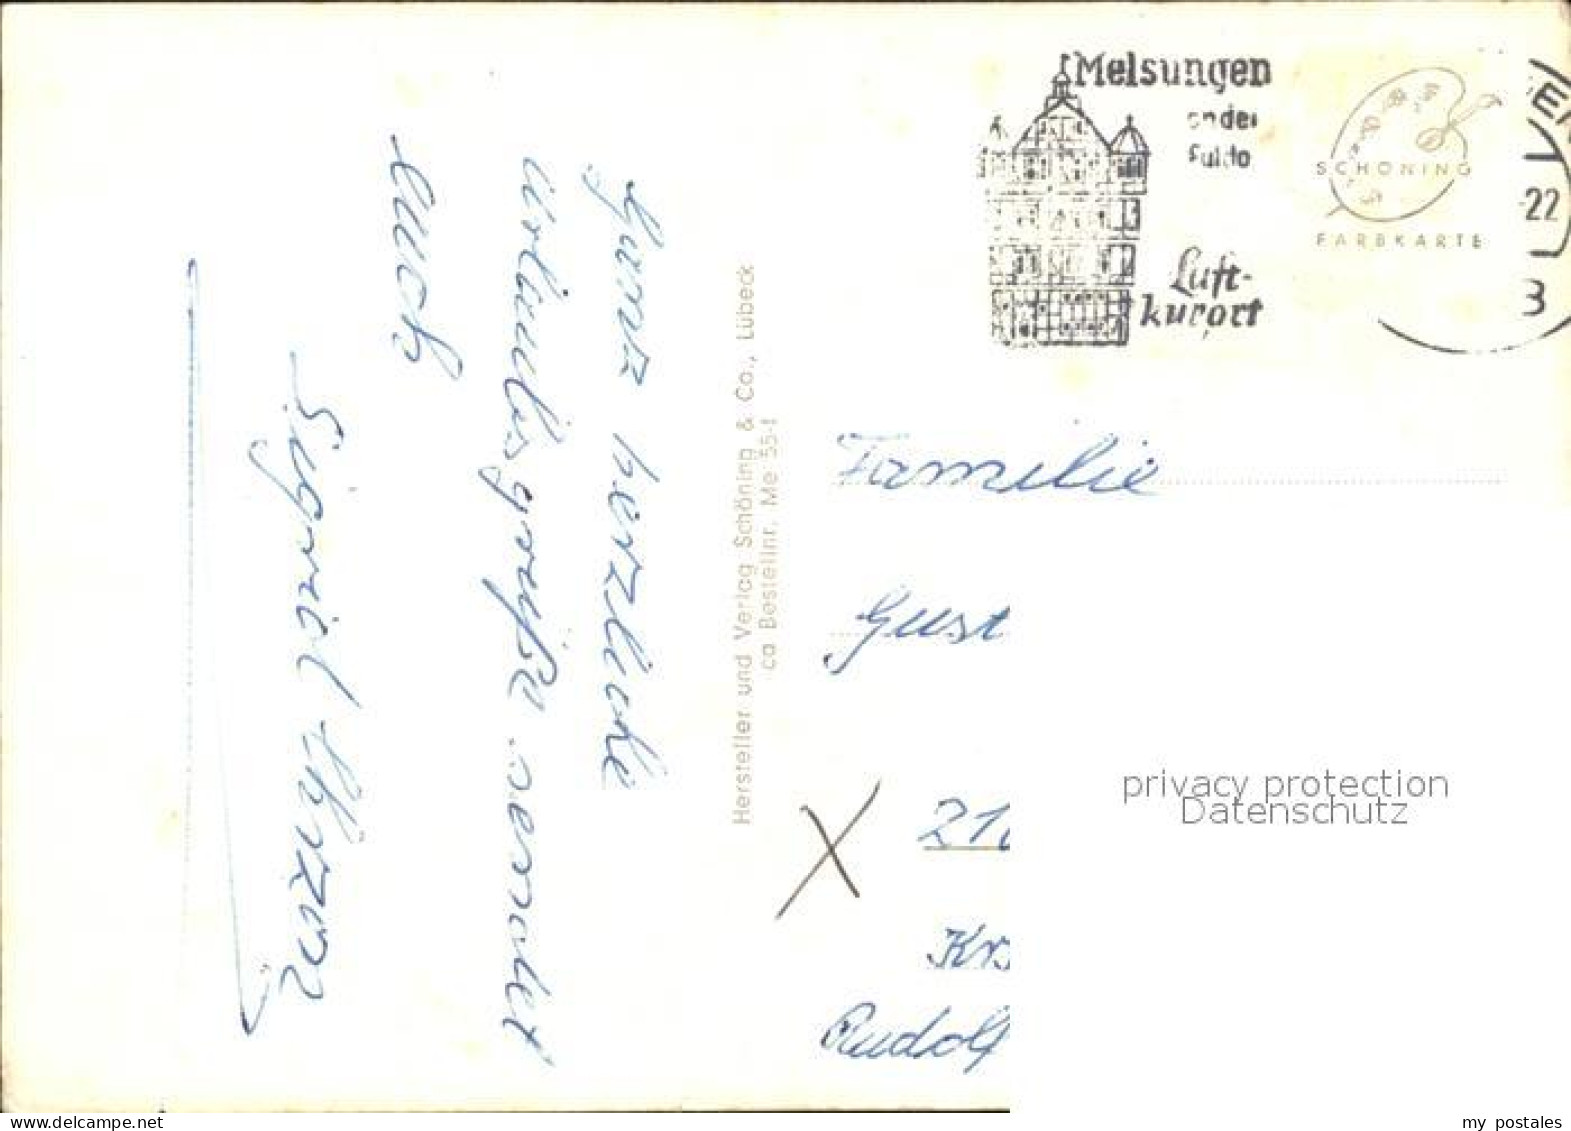 Melsungen
an der
Fulda
Luft-
kurort
SCHÖNING
FARBKARTE
22
3
Ganz herzliche
Urlaubsgrüße sendet
euch
Sigrid
Hersteller und Verlag Schöning & Co., Lübeck
ca Bestellnr. Me 55-1
Familie
Gust
21
Kr
Rudolf
privacy protection
Datenschutz
www.delcampe.net
my_postales